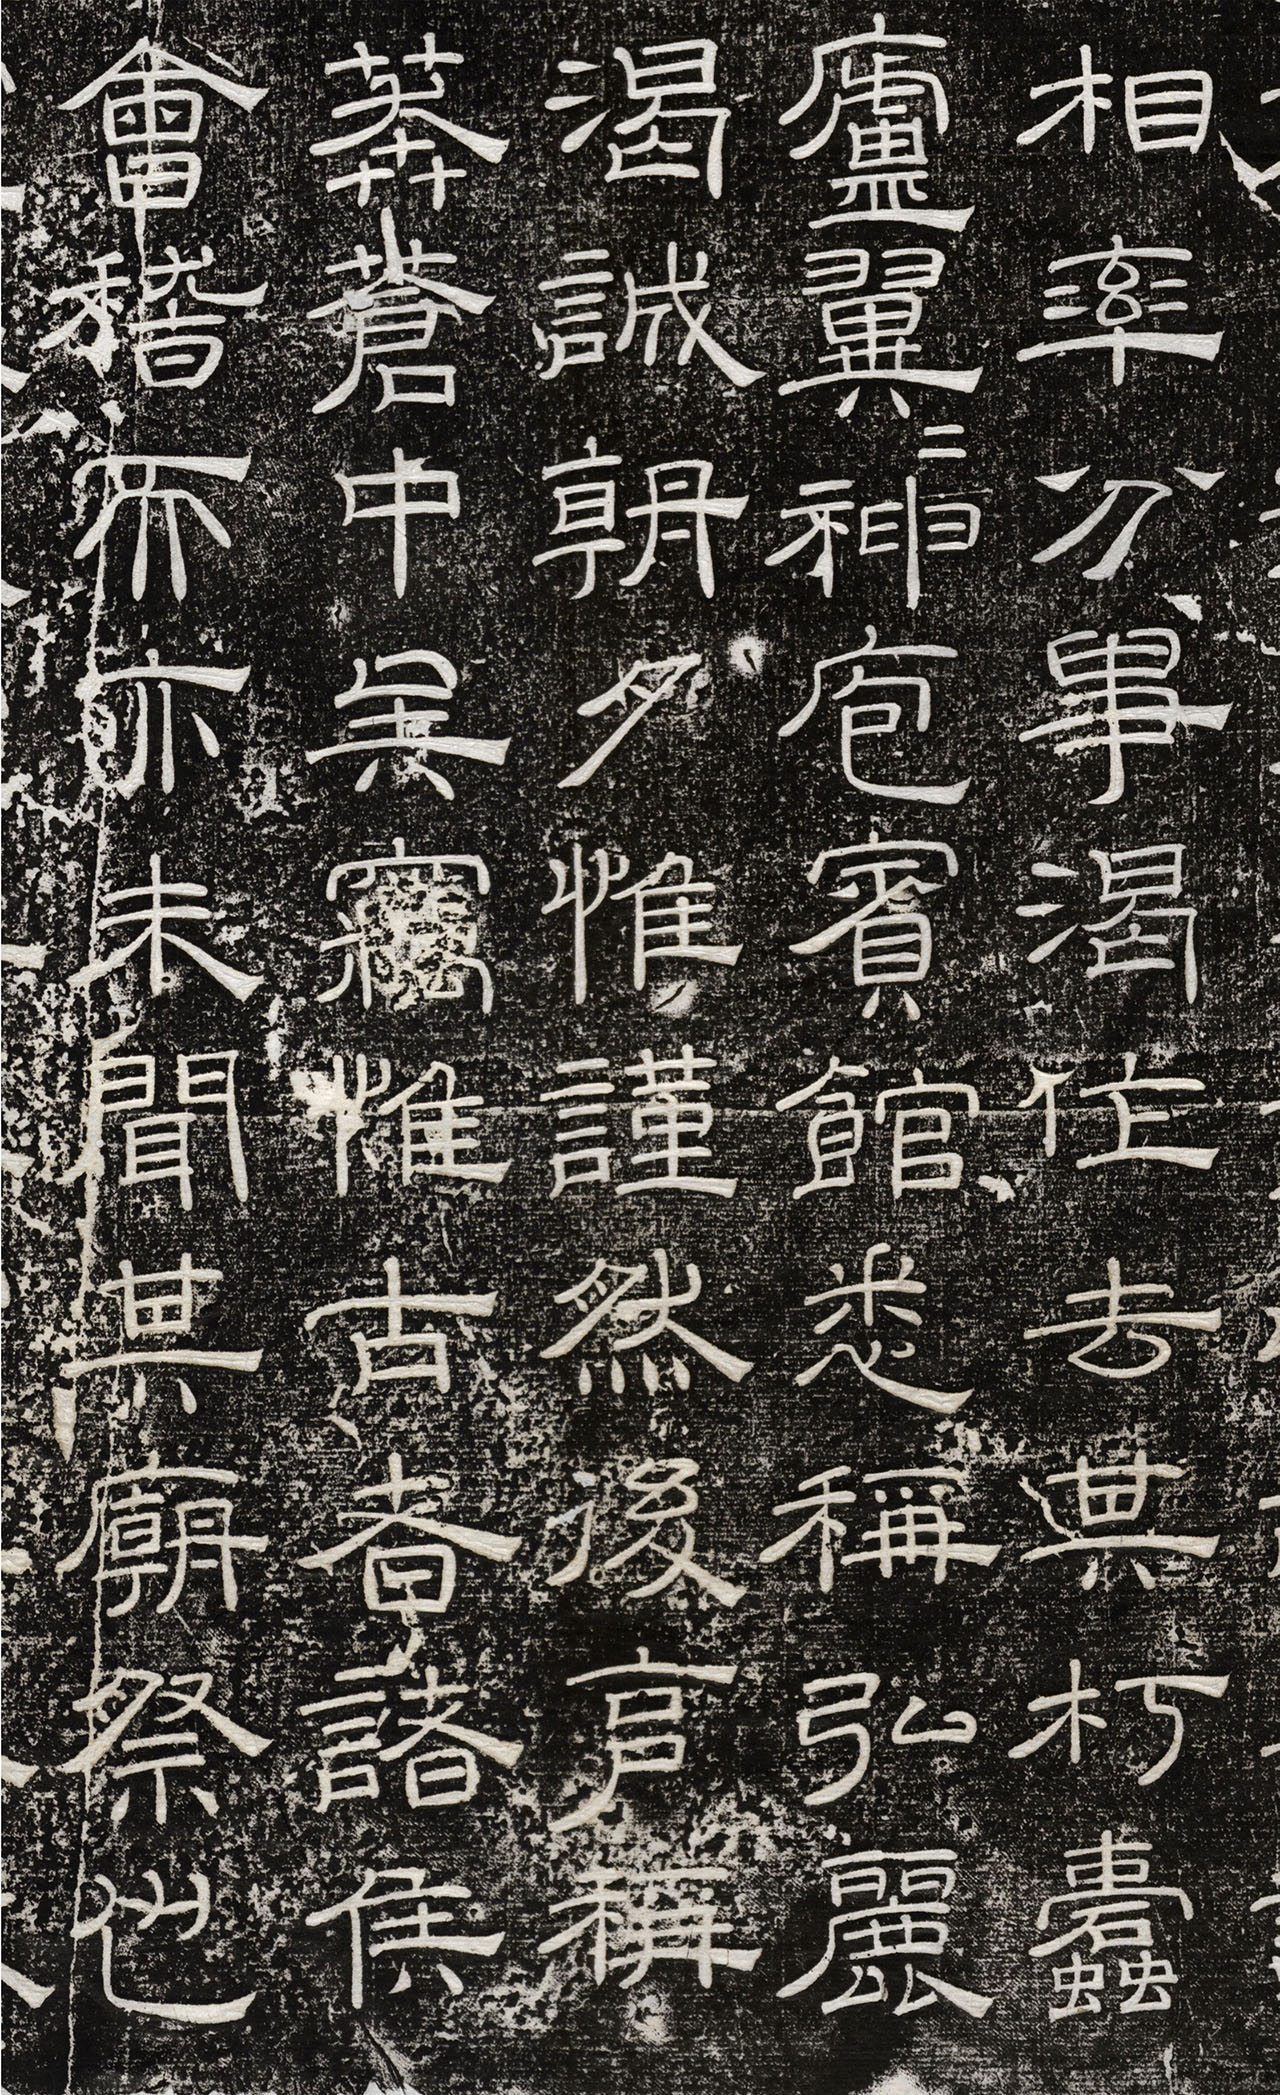 相率分事渴任去其朽蠹
廬翼二神庖賓館悉稱弘麗
渴誠朝夕惟謹然後亯稱
莽蒼中矣竊惟古者諸侯
會稽而亦未聞其廟祭也